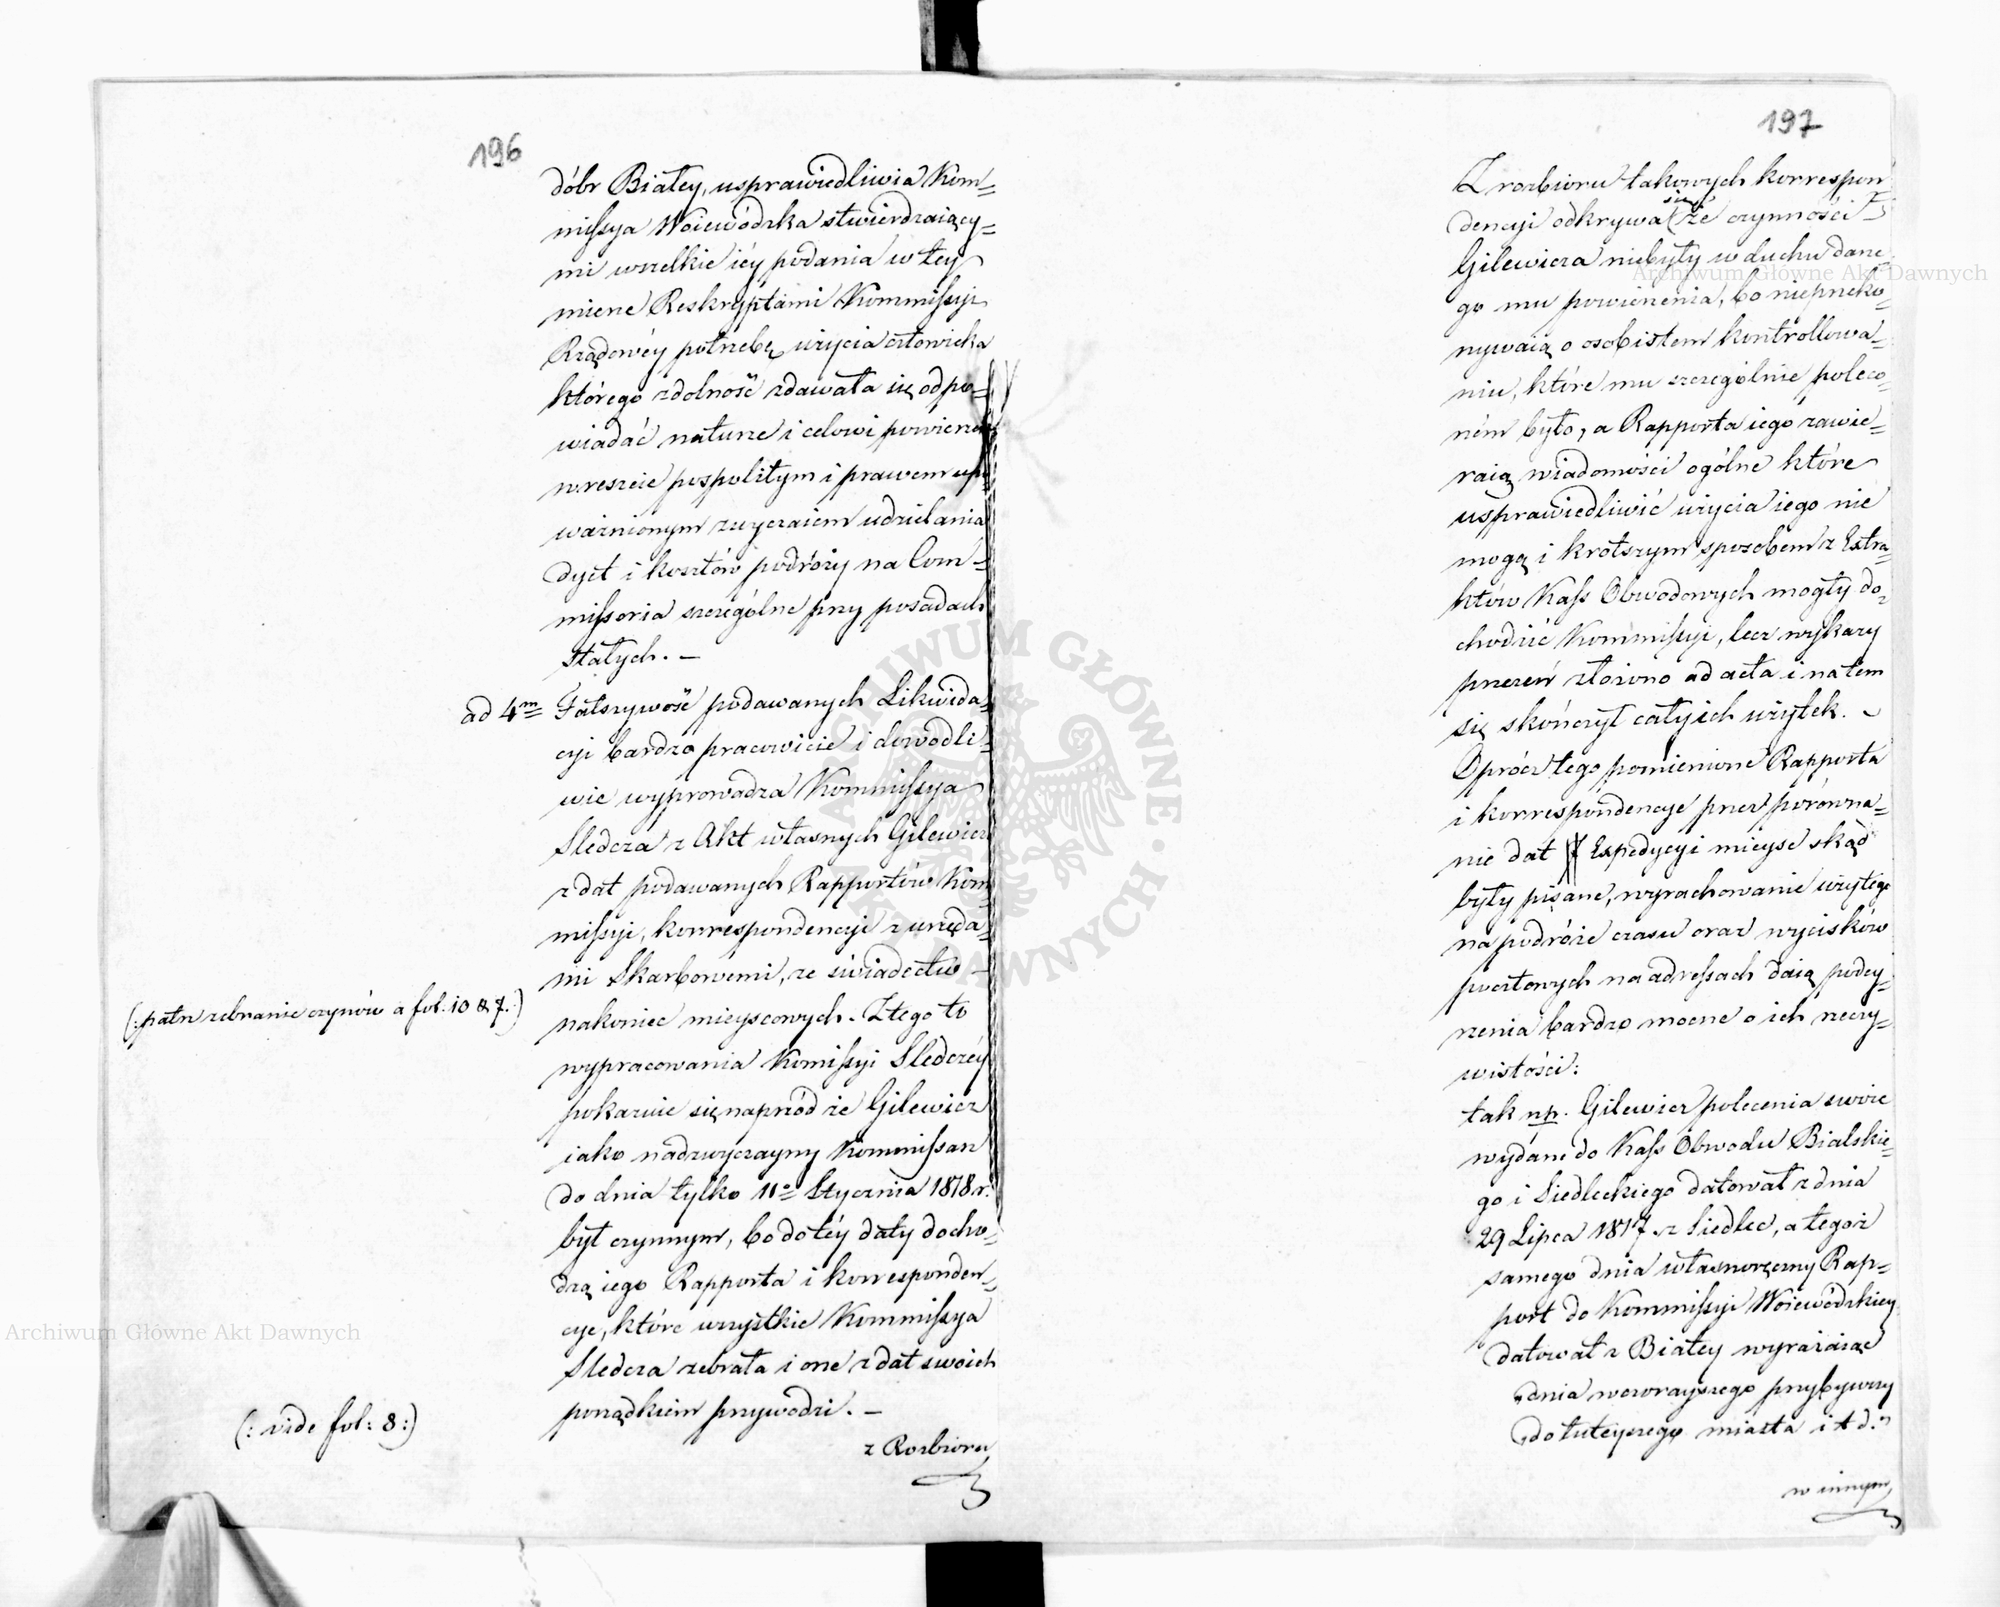 196
dóbr Białey, usprawiedliwia Kom=
missya Woiewódzka stwierdzaiący=
mi wszelkie iéy podania w tey
mierze Reskryptami Kommissyi
Rządowéy potrzebę użycia człowieka
którego zdolność zdawała się odpo=
wiadać naturze i celowi powierze
wreszcie pospolitym i prawem upo
ważnionym zwyczaiem udzielania
dyet i kosztów podróży na Com=
missoria szczególne przy posadach
stałych. —
ad 4m Fałszywość podawanych Likwida=
cyi bardzo pracowicie i dowodli=
wie wyprowadza Kommissya
Sledcza z Akt własnych Gilewicza
z dat podawanych Rapportów Kom
missyi, korrespondencyi z urzęda=
mi Skarbowémi, ze świadectw —
nakoniec mieyscowych. Z tego to
(: patrz zebranie czynów a fol: 10 & 7. :)
wypracowania Komissyi Sledczéy
pokazuie się naprzód że Gilewicz
iako nadzwyczayny Kommissarz
do dnia tylko 11o Stycznia 1818 r.
był czynnym, bo do téy daty docho=
dzą iego Rapporta i korresponden=
cye, które wszystkie Kommissya
Sledcza zebrała i one z dat swoich
porządkiem przywodzi. —
(: vide fol: 8 :)
z Rozbioru
197
Z rozbioru takowych korrespon
dencyi odkrywa się że czynności
Gilewicza niebyły w duchu dane
go mu powierzenia, bo nieprzeko=
nywaią o osobistem kontrollowa=
niu, które mu szczególnie poleco=
ném było, a Rapporta iego zawie=
raią wiadomości ogólne które
usprawiedliwić użycia iego nie
mogą i krótszym sposobem z Extra=
któw Kass Obwodowych mogły do=
chodzić Kommissyi, lecz wykazy
przezeń złożono ad acta i na tem
się skończył cały ich użytek. —
Oprócz tego pomienione Rapporta
i korrespondencye przez porówna=
nie dat Expedycyi mieysc skąd
były pisane, wyrachowanie użytego
na podróże czasu oraz wycisków
pocztowych na adressach daią podey=
rzenia bardzo mocne o ich rzeczy=
wistości:
tak np. Gilewicz polecenia swoie
wydane do Kass Obwodu Bialskie=
go i Siedleckiego datował z dnia
29 Lipca 1817 z Siedlec, a tegoż
samego dnia własnoręczny Rap=
port do Kommissyi Woiewódzkiey
datował z Białey wyrażaiąc
„dnia wczorayszego przybywszy
„do tuteyszego miasta i t d."
w innym
Archiwum Główne Akt Dawnych
Archiwum Główne Akt Dawnych
ARCHIWUM GŁÓWNE AKT DAWNYCH